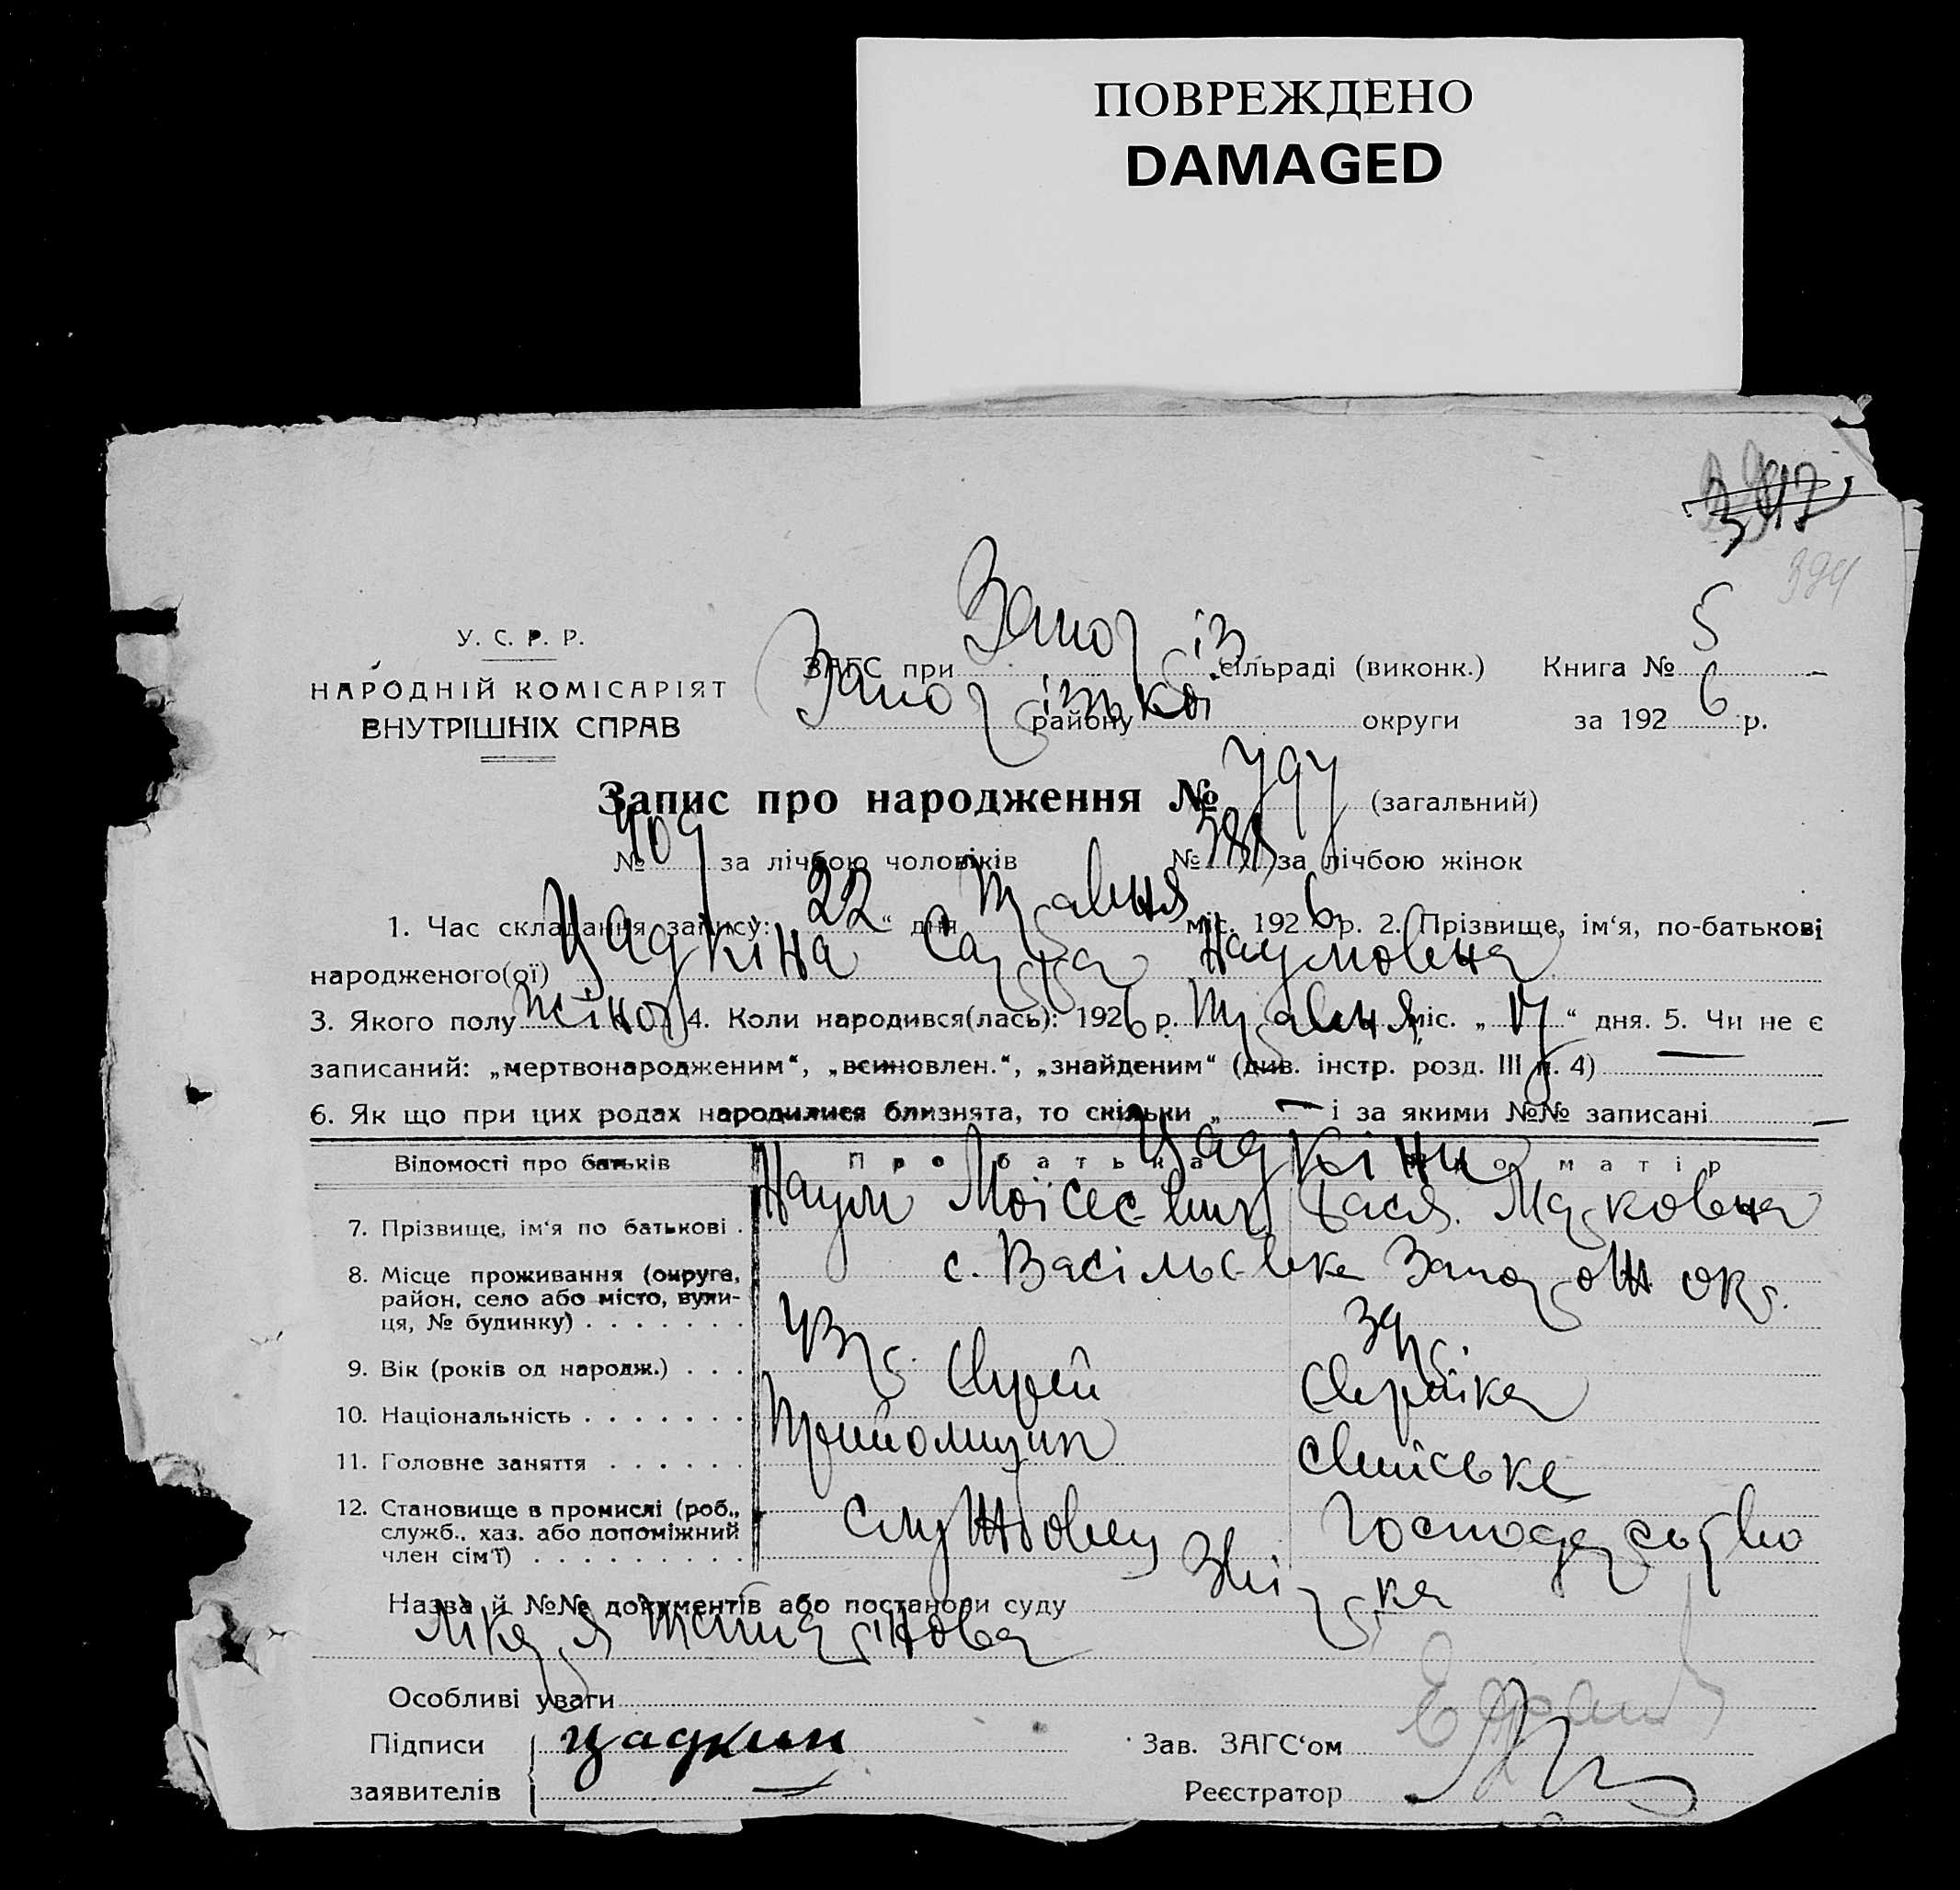 ПОВРЕЖДЕНО
DAMAGED
394
У. С. Р. Р.
НАРОДНІЙ КОМІСАРІЯТ
ВНУТРІШНІХ СПРАВ
ЗАГС при Запоріз сільраді (виконк.) Книга № 5
Запорізької району округи за 1926 р.
Запис про народження № 797 (загальний)
№ 409 за лічбою чоловіків № 388 за лічбою жінок
1. Час складання запису: 22 “ дня травня міс. 1926 р. 2. Прізвище, ім‘я, по-батькові
народженого(ої) Цадкіна Сарра Наумовна
3. Якого полу жіноч 4. Коли народився(лась): 1926 р. травня міс. „ 17 “ дня. 5. Чи не є
записаний: „мертвонародженим“, „всиновлен.“, „знайденим“ (див. інстр. розд. III п. 4) —
6. Як що при цих родах народилися близнята, то скільки „ — і за якими №№ записані —
Відомості про батьків Про батька Цадкіни Про матір
7. Прізвище, ім‘я по батькові . Наум Мойсеєвич Бася Марковна
8. Місце проживання (округа, район, село або місто, вулиця, № будинку) . . . . . . . с. Васільєвка Запорож окр.
9. Вік (років од народж.) . . . 43 р. 39 р.
10. Національність . . . . . . . Єврей Єврейка
11. Головне заняття . . . . . . Прийомщик хатнє
12. Становище в промислі (роб., служб., хаз. або допоміжний член сім‘ї) . . . . . . . . . Службовец Господарство
Назва й №№ документів або постанови суду Довідка
лікаря
Особливі уваги
Підписи Цадкин Зав. ЗАГС‘ом
заявителів Реєстратор